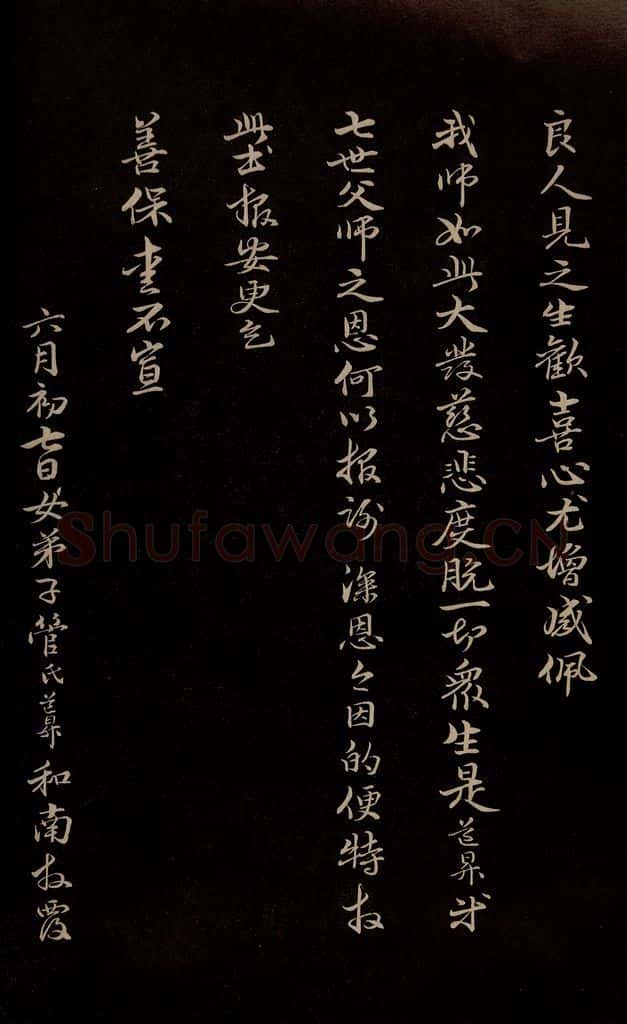 良人見之生歡喜心尤增感佩
我師如此大發慈悲度脱一切衆生是道昇等
七世父師之恩何以报謝深恩今因的便特拜
此書报安更乞
善保重不宣
六月初七日女弟子管氏道昇和南拜覆
Shufawang.CN